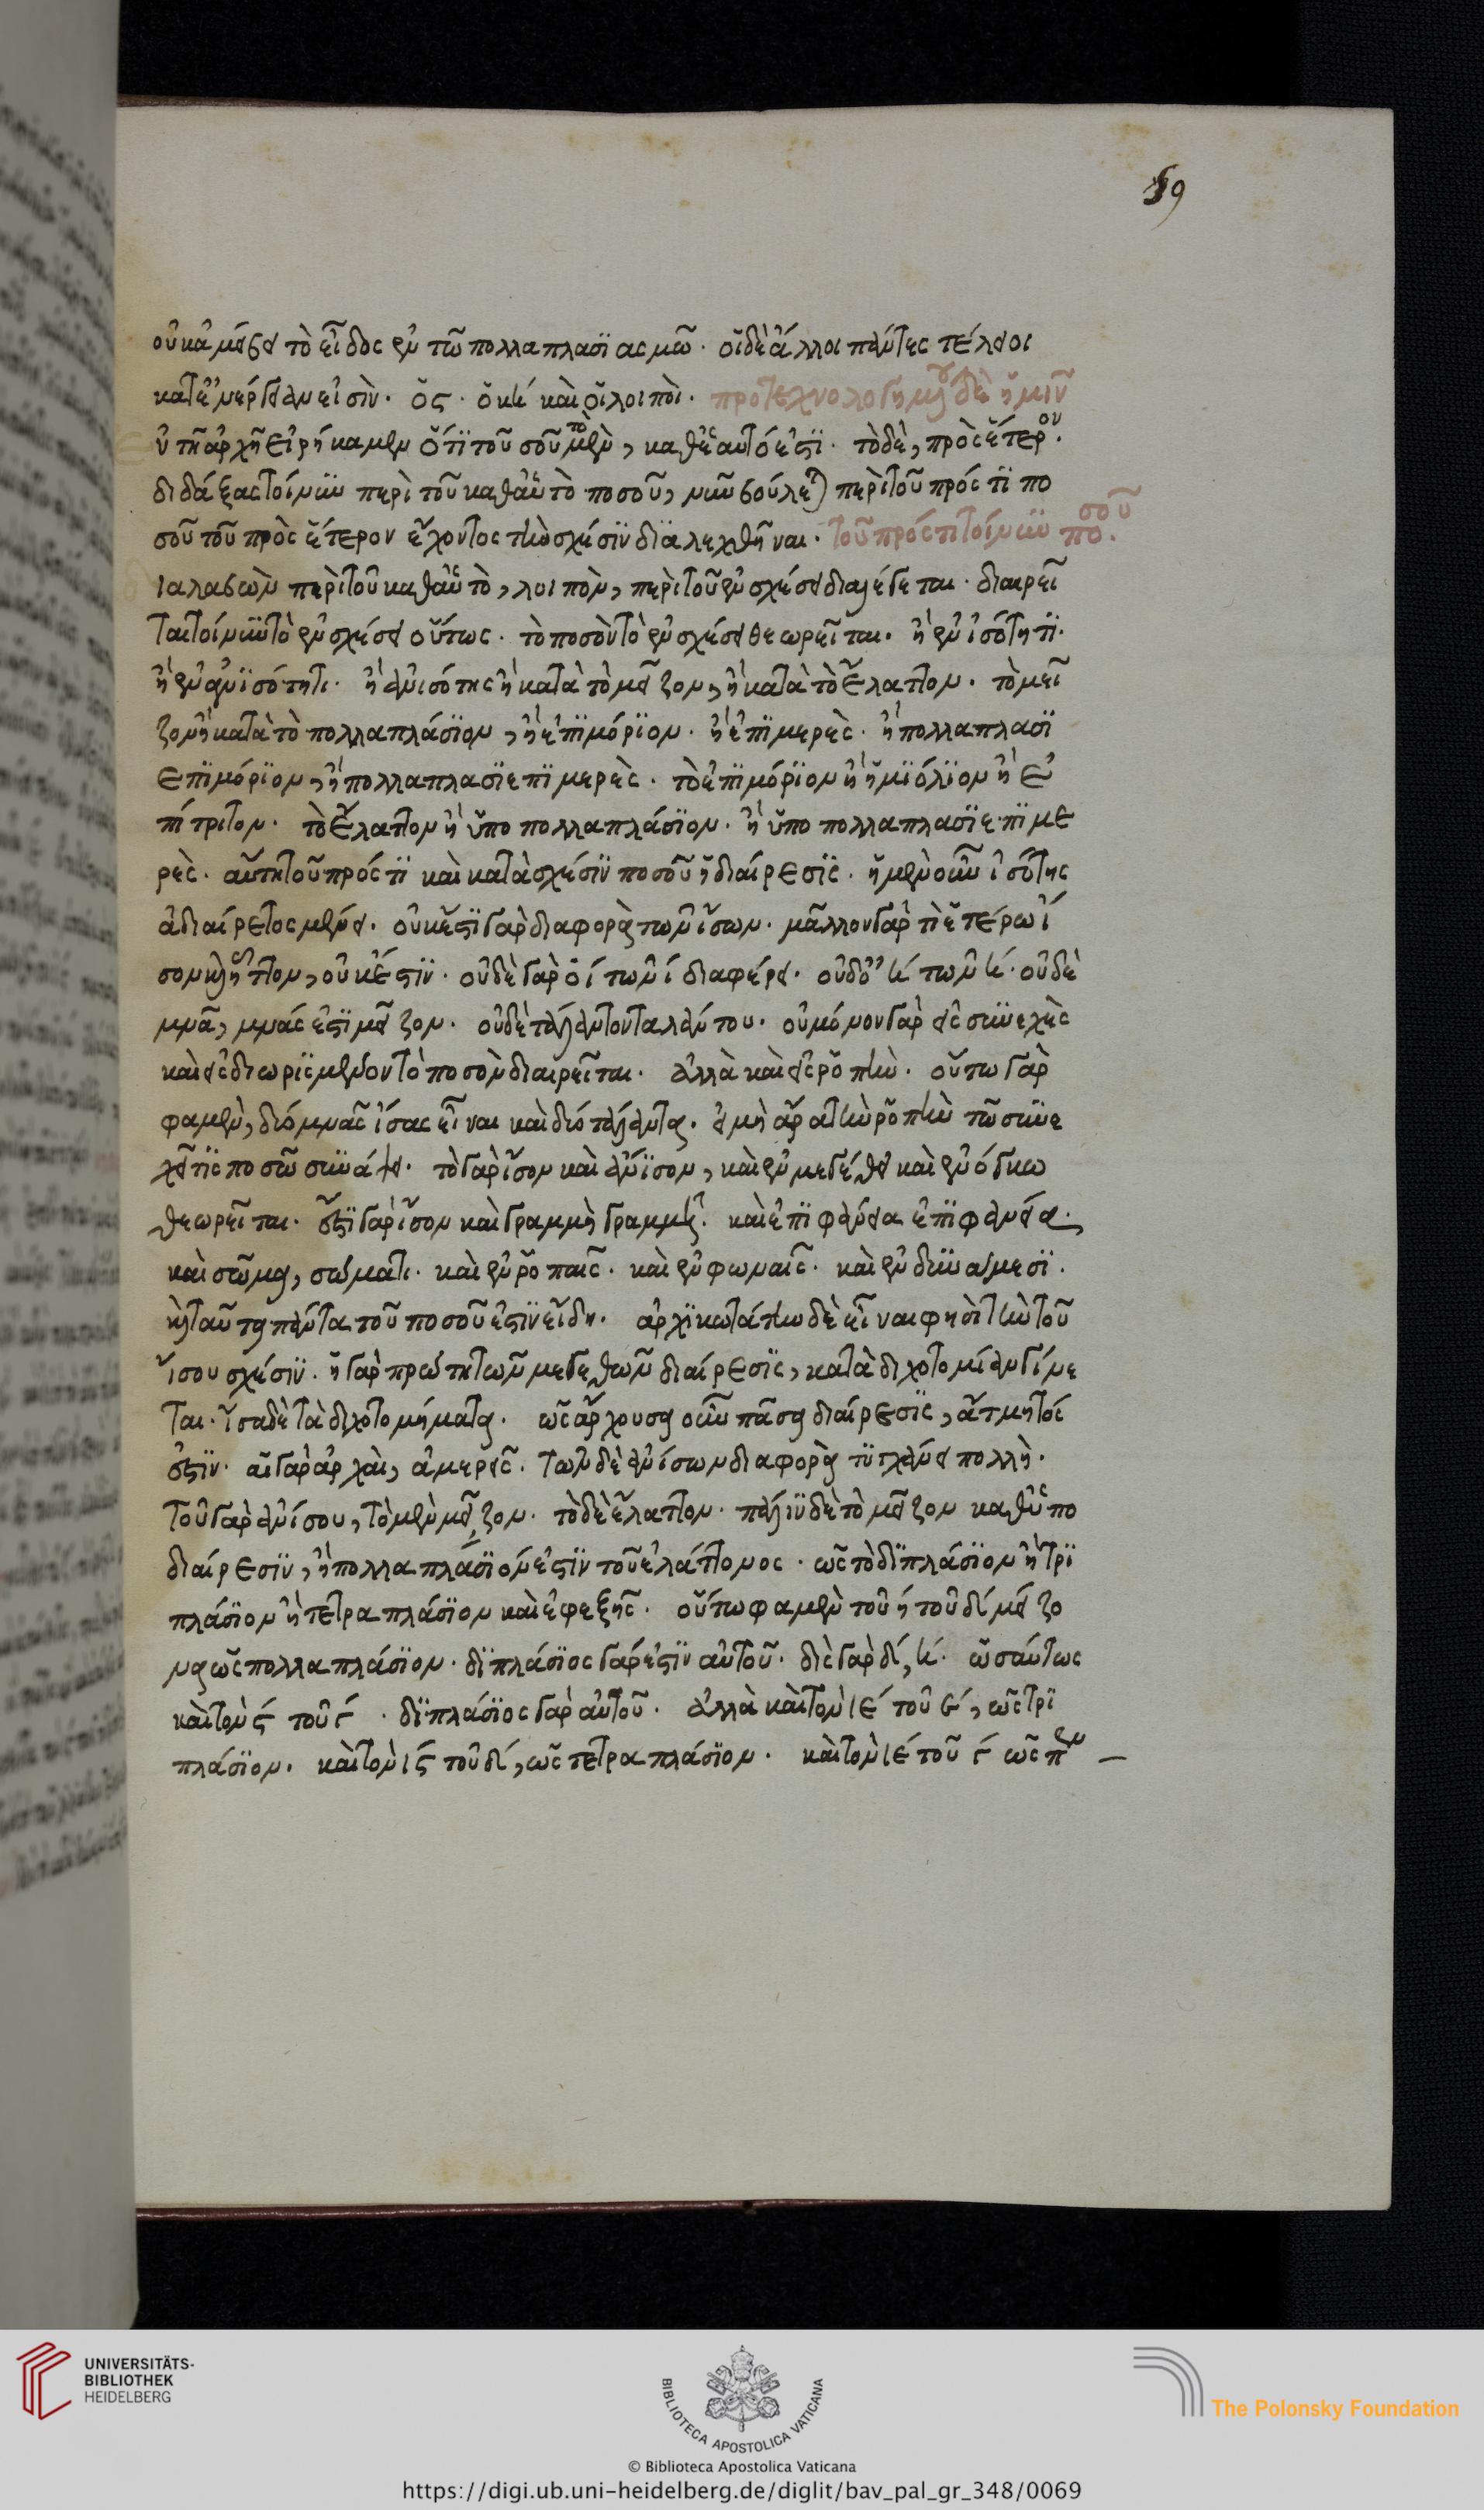 59
οὐκ ἀμείβει τὸ εἶδος ἐν τῶ πολλαπλασιασμῶ. οἱ δὲ ἄλλοι πάντες τέλειοι
κατ' ἐνέργειαν εἰσίν. ὁ ς. ὁ κη καὶ οἱ λοιποί. προτεχνολογημένου δὲ ἡμῖν
ἐν τῆ ἀρχῆ εἰρήκαμεν ὅτι τοῦ ποσοῦ τὸ μὲν, καθ' ἑαυτό ἐστι. τὸ δὲ, πρὸς ἕτερον.
διδάξας τοίνυν περὶ τοῦ καθ' αὑτὸ ποσοῦ, νῦν βούλεται περὶ τοῦ πρός τι πο
σοῦ τοῦ πρὸς ἕτερον ἔχοντος τὴν σχέσιν διαλεχθῆναι. τοῦ πρός τι τοίνυν ποσοῦ
ιαλαβὼν περὶ τοῦ καθ' αὑτὸ, λοιπὸν, περὶ τοῦ ἐν σχέσει διαλέγεται. διαιρεῖ
ται τοίνυν τὸ ἐν σχέσει οὕτως. τὸ ποσὸν τὸ ἐν σχέσει θεωρεῖται. ἢ ἐν ἰσότητι.
ἢ ἐν ἀνισότητι. ἡ ἀνισότης ἢ κατὰ τὸ μεῖζον, ἢ κατὰ τὸ ἔλαττον. τὸ μεῖ
ζον ἢ κατὰ τὸ πολλαπλάσιον, ἢ ἐπιμόριον. ἢ ἐπιμερὲς. ἢ πολλαπλασι
επιμόριον, ἢ πολλαπλασιεπιμερὲς. τὸ ἐπιμόριον ἢ ἡμιόλιον ἢ ἐ
πίτριτον. τὸ ἔλαττον ἢ ὑποπολλαπλάσιον. ἢ ὑποπολλαπλασιεπιμε
ρὲς. αὕτη τοῦ πρός τι καὶ κατὰ σχέσιν ποσοῦ ἡ διαίρεσις. ἡ μὲν οὖν ἰσότης
ἀδιαίρετος μένει. οὐκ ἔστι γὰρ διαφορὰ τῶν ἴσων. μᾶλλον γὰρ τι ἑτέρω ἴ
σον καὶ ἧττον, οὐκ ἔστιν. οὐδὲ γὰρ ὁ ί τῶν ί διαφέρει. οὐδ' ὁ κ τῶν κ. οὐδὲ
μνᾶ, μνάς ἐστι μεῖζον. οὐδὲ τάλαντον ταλάντου. οὐ μόνον γὰρ εἰς συνεχὲς
καὶ εἰς διωρισμένον τὸ ποσὸν διαιρεῖται. ἀλλὰ καὶ εἰς ῥοπὴν. οὕτω γὰρ
φαμὲν, δύο μνᾶς ἴσας εἶναι καὶ δύο τάλαντα. εἰ μὴ ἄρα τὴν ῥοπὴν τῶ συνε
χεῖ τις ποσῶ συνάψει. τὸ γὰρ ἴσον καὶ ἄνισον, καὶ ἐν μεγέθει καὶ ἐν ὄγκω
θεωρεῖται. ἔστι γὰρ ἴσον καὶ γραμμὴ γραμμῆ. καὶ ἐπιφάνεια ἐπιφανεία.
καὶ σῶμα, σώματι. καὶ ἐν ῥοπαῖς. καὶ ἐν φωναῖς. καὶ ἐν δυνάμεσι.
καὶ ταῦτα πάντα τοῦ ποσοῦ ἐστιν εἴδη. ἀρχικωτάτην δὲ εἶναι φησὶ τὴν τοῦ
ἴσου σχέσιν. ἡ γὰρ πρώτη τῶν μεγεθῶν διαίρεσις, κατὰ διχοτομίαν γίνε
ται. ἴσα δὲ τὰ διχοτομήματα. ὡς ἄρχουσα οὖν πᾶσα διαίρεσις, ἄτμητός
ἐστιν. αἱ γὰρ ἀρχαὶ, ἀμερεῖς. τῶν δὲ ἀνίσων διαφορὰ τυγχάνει πολλὴ.
τοῦ γὰρ ἀνίσου, τὸ μὲν μεῖζον. τὸ δὲ ἔλαττον. πάλιν δὲ τὸ μεῖζον καθ' ὑπο
διαίρεσιν, ἢ πολλαπλάσιόν ἐστιν τοῦ ἐλάττονος. ὡς τὸ διπλάσιον ἢ τρι
πλάσιον ἢ τετραπλάσιον καὶ ἐφεξῆς. οὕτω φαμὲν τοῦ ή τοῦ δί μείζο
να ὡς πολλαπλάσιον. διπλάσιος γάρ ἐστιν αὐτοῦ. δὶς γὰρ δί, κ. ὡσαύτως
καὶ τὸν ς τοῦ γ. διπλάσιος γὰρ αὐτοῦ. ἀλλὰ καὶ τὸν ιέ τοῦ έ, ὡς τρι
πλάσιον. καὶ τὸν ις τοῦ δί, ὡς τετραπλάσιον. καὶ τὸν ιέ τοῦ γ ὡς
UNIVERSITÄTS-
BIBLIOTHEK
HEIDELBERG
BIBLIOTECA APOSTOLICA VATICANA
The Polonsky Foundation
© Biblioteca Apostolica Vaticana
https://digi.ub.uni-heidelberg.de/diglit/bav_pal_gr_348/0069